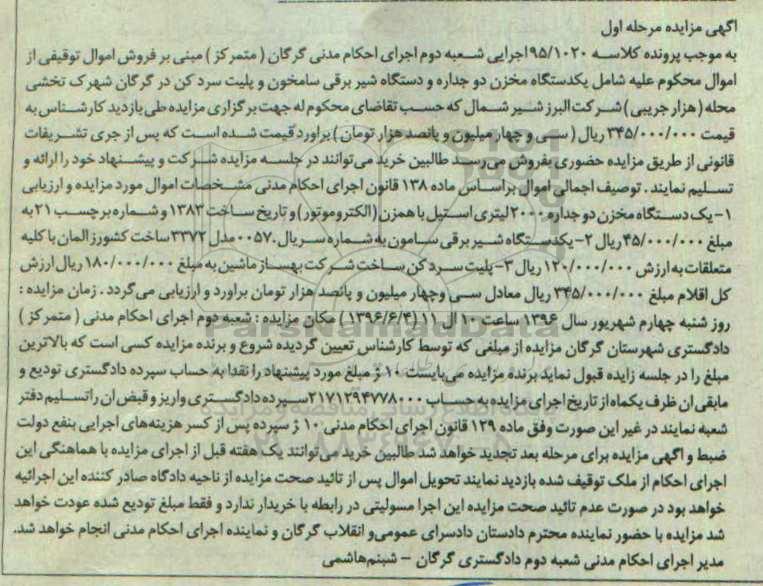 آگهی مزایده مرحله اول
به موجب پرونده کلاسه ۹۵/۱۰۲۰ اجرایی شعبه دوم اجرای احکام مدنی گرگان (متمرکز) مبنی بر فروش اموال توقیفی از
اموال محکوم علیه شامل یکدستگاه مخزن دو جداره و دستگاه شیر برقی سامخون و پلیت سرد کن در گرگان شهرک تخشی
محله (هزار جریبی) شرکت البرز شیر شمال که حسب تقاضای محکوم له جهت برگزاری مزایده طی بازدید کارشناس به
قیمت ۳۴۵/۰۰۰/۰۰۰ ریال (سی و چهار میلیون و پانصد هزار تومان) براورد قیمت شده است که پس از جری تشریفات
قانونی از طریق مزایده حضوری بفروش می‌رسد طالبین خرید می‌توانند در جلسه مزایده شرکت و پیشنهاد خود را ارائه و
تسلیم نمایند. توصیف اجمالی اموال براساس ماده ۱۳۸ قانون اجرای احکام مدنی مشخصات اموال مورد مزایده و ارزیابی
۱- یک دستگاه مخزن دو جداره ۲۰۰۰ لیتری استیل با همزن (الکتروموتور) و تاریخ ساخت ۱۳۸۳ و شماره برچسب ۲۱ به
مبلغ ۴۵/۰۰۰/۰۰۰ ریال ۲- یکدستگاه شیر برقی سامون به شماره سریال ۰۰۵۷ مدل ۳۳۷۲ ساخت کشورز المان با کلیه
متعلقات به ارزش ۱۲۰/۰۰۰/۰۰۰ ریال ۳- پلیت سرد کن ساخت شرکت بهساز ماشین به مبلغ ۱۸۰/۰۰۰/۰۰۰ ریال ارزش
کل اقلام مبلغ ۳۴۵/۰۰۰/۰۰۰ ریال معادل سی وچهار میلیون و پانصد هزار تومان براورد و ارزیابی می‌گردد. زمان مزایده :
روز شنبه چهارم شهریور سال ۱۳۹۶ ساعت ۱۰ ال ۱۱ (۱۳۹۶/۶/۴) مکان مزایده : شعبه دوم اجرای احکام مدنی (متمرکز)
دادگستری شهرستان گرگان مزایده از مبلغی که توسط کارشناس تعیین گردیده شروع و برنده مزایده کسی است که بالاترین
مبلغ را در جلسه زایده قبول نماید برنده مزایده می‌بایست ۱۰ ٪ مبلغ مورد پیشنهاد را نقدا به حساب سپرده دادگستری تودیع و
مابقی ان ظرف یکماه از تاریخ اجرای مزایده به حساب ۲۱۷۱۲۹۴۷۷۸۰۰۰ سپرده دادگستری واریز و قبض ان را تسلیم دفتر
شعبه نمایند در غیر این صورت وفق ماده ۱۲۹ قانون اجرای احکام مدنی ۱۰ ٪ سپرده پس از کسر هزینه‌های اجرایی بنفع دولت
ضبط و اگهی مزایده برای مرحله بعد تجدید خواهد شد طالبین خرید می‌توانند یک هفته قبل از اجرای مزایده با هماهنگی این
اجرای احکام از ملک توقیف شده بازدید نمایند تحویل اموال پس از تائید صحت مزایده از ناحیه دادگاه صادر کننده این اجرائیه
خواهد بود در صورت عدم تائید صحت مزایده این اجرا مسولیتی در رابطه با خریدار ندارد و فقط مبلغ تودیع شده عودت خواهد
شد مزایده با حضور نماینده محترم دادستان دادسرای عمومی و انقلاب گرگان و نماینده اجرای احکام مدنی انجام خواهد شد.
مدیر اجرای احکام مدنی شعبه دوم دادگستری گرگان – شبنم هاشمی
ParsNamadData